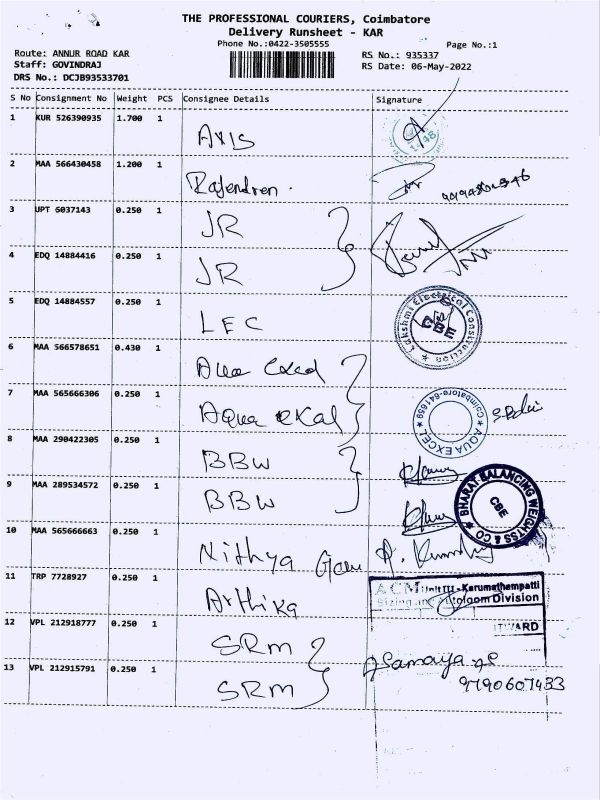 THE PROFESSIONAL COURIERS, Coimbatore
Delivery Runsheet - KAR
Phone No.:0422-3505555
Page No.:1
Route: ANNUR ROAD KAR
RS No.: 935337
Staff: GOVINDRAJ
RS Date: 06-May-2022
DRS No.: DCJB93533701
S No Consignment No Weight PCS Consignee Details Signature
1 KUR 526390935 1.700 1 AXIS
2 MAA 566430458 1.200 1 Rajendren.
3 UPT 6037143 0.250 1 JR
4 EDQ 14884416 0.250 1 JR
5 EDQ 14884557 0.250 1 LEC
Lakshmi Electrical Construction
CBE
6 MAA 566578651 0.430 1
7 MAA 565666306 0.250 1 Aqua
AQUA EXCEL Coimbatore-641659
8 MAA 290422305 0.250 1 BBW
9 MAA 289534572 0.250 1 BBW
BHARAT BALANCING WEIGHTSS & CO
CBE
10 MAA 565666663 0.250 1 Nithya
11 TRP 7728927 0.250 1 Arthika
ACM Unit III - Karumathampatti
Sizing and Autoloom Division
12 VPL 212918777 0.250 1 SRm
13 VPL 212915791 0.250 1 SRm
9790607433